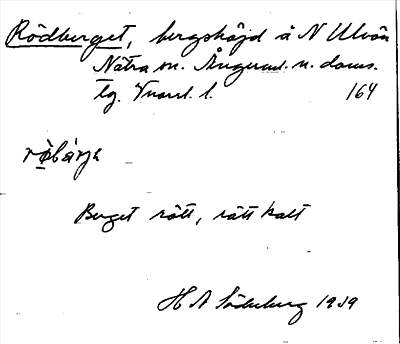 Rödberget, bergshöjd å N Ulvön
Nätra sn. Ångerml. n. doms.
tg. Vnorrl. l. 164
rø̀bárjə
Berget rött, rätt kalt
H A Söderberg 1939